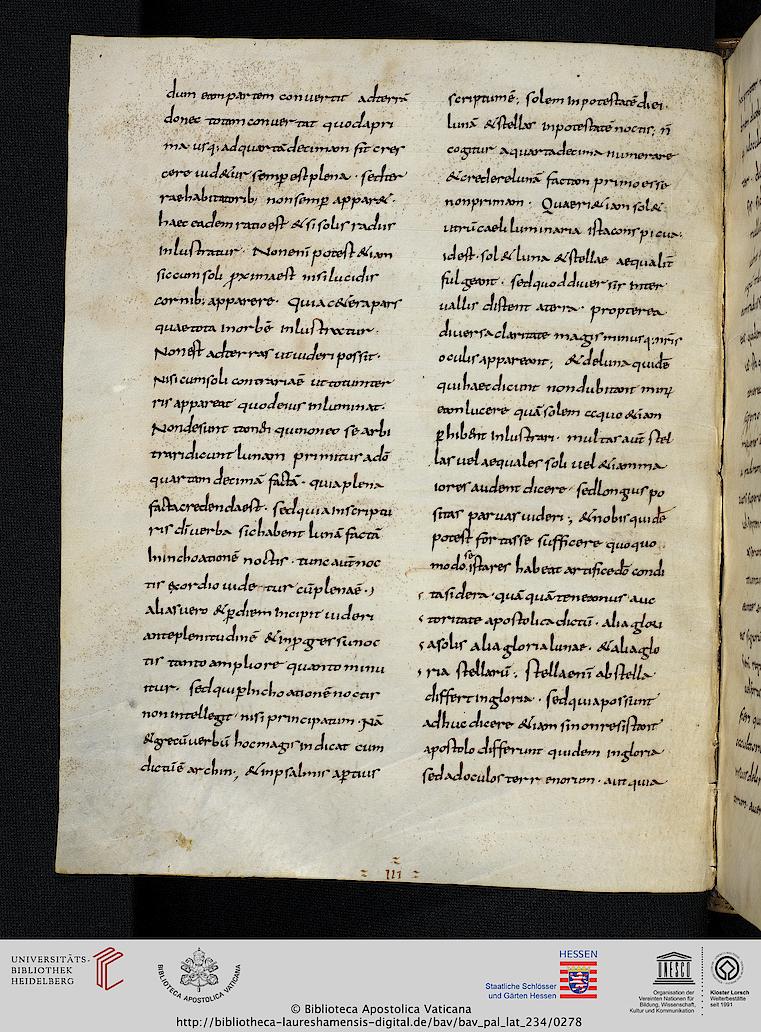 dum eam partem convertit adterrā
donec totam convertat quodapri
ma usq; adquartādecimam fit cres
cere vid&ur semp est plena · sedter
rae habitatorib; nonsemp appar& ·
haec eadem ratio est & si solis radiis
inlustratur · Non enī potest & iam
sic cum soli proxima est nisi lucidis
cornib; apparere · Quia c&era pars
quae tota in orbē inlustratur ·
Non est adterras ut videri possit ·
Nisi cum soli contraria ē ut totum ter
ris appareat quod eius inluminat ·
Nondesunt tamdi qui non eo se arbi
trari dicunt lunam primitus a dō
quartam decimā factā · quia plena
facta credenda est · sed quia inscriptu
ris dī verba sic habent lunā factā
In inchoationē noctis · tunc aut noc
tis exordio vide tur cū plena ē ·
alias vero & p diem incipit videri
ante plenitudinē & in pgressu noc
tis tanto ampliore quanto minu
itur · sed qui p inchoationē noctis
non intellegit · nisi principatum · Nā
& grecū verbū hoc magis indicat cum
dictū ē archin ·, & in psalmis aptius
scriptum ē ; solem in potestatē diei ·
lunā & stellas in potestatē noctis ; n̄
cogitur a quartadecima numerare
& credere lunā factam primo esse
non primam · Quaeri & iam sol &
utrū caeli luminaria ista conspicua ·
id est · sol & luna & stellae aequalit̄
fulgeant · sed quod diversis inter
vallis distent a terra · propterea
diversa claritate magis minusq; nr̄is
oculis appareant ; & de luna quidē
qui haec dicunt non dubitant minus
eam lucere quā solem a quo & iam
phibent inlustrari · multas aut̄ stel
las vel aequales soli vel & iam ma
iores audent dicere · sed longius po
sitas parvas videri ·, & nobis quidē
potest fortasse sufficere quo quo
modo se istares habeat artifice dō condi
ta sidera · quā quā teneamus auc
toritate apostolica dictū · alia glori
a solis alia gloria lunae · & alia glo
ria stellarū · stella enī ab stella
differt in gloria · sed quia possunt
adhuc dicere & iam si non resistant
apostolo differunt quidem in gloria
sed ad oculos terr enorum · aut quia
III
UNIVERSITÄTS-
BIBLIOTHEK
HEIDELBERG
BIBLIOTECA APOSTOLICA VATICANA
HESSEN
Staatliche Schlösser
und Gärten Hessen
UNESCO
Organisation der
Vereinten Nationen für
Bildung, Wissenschaft,
Kultur und Kommunikation
Kloster Lorsch
Welterbestätte
seit 1991
© Biblioteca Apostolica Vaticana
http://bibliotheca-laureshamensis-digital.de/bav/bav_pal_lat_234/0278